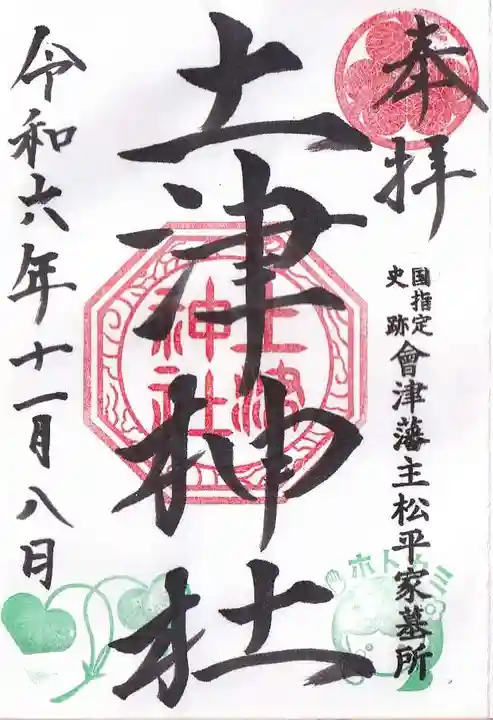 奉拝
国指定
史跡
會津藩主松平家墓所
土津神社
土津
神社
令和六年十一月八日